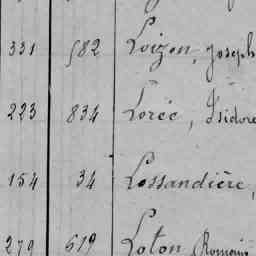 331 582 Loizon, Joseph
223 834 Lorée, Isidore
154 34 Lossandière,
279 619 Loton, Romain